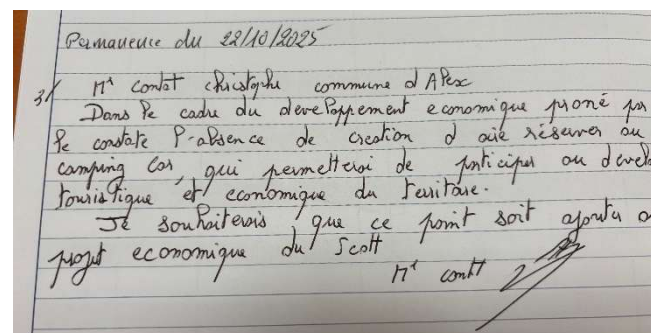 Permanence du 22/10/2025
3/ Mr contat christophe commune d Alex
Dans le cadre du developpement economique proné par
le constate l'absence de creation d aire réserver au
camping car, qui permetteroi de participer au devel
touristique et economique du territoire.
Je souhaiterois que ce point soit ajouter a
projet economique du Scott
Mr contt